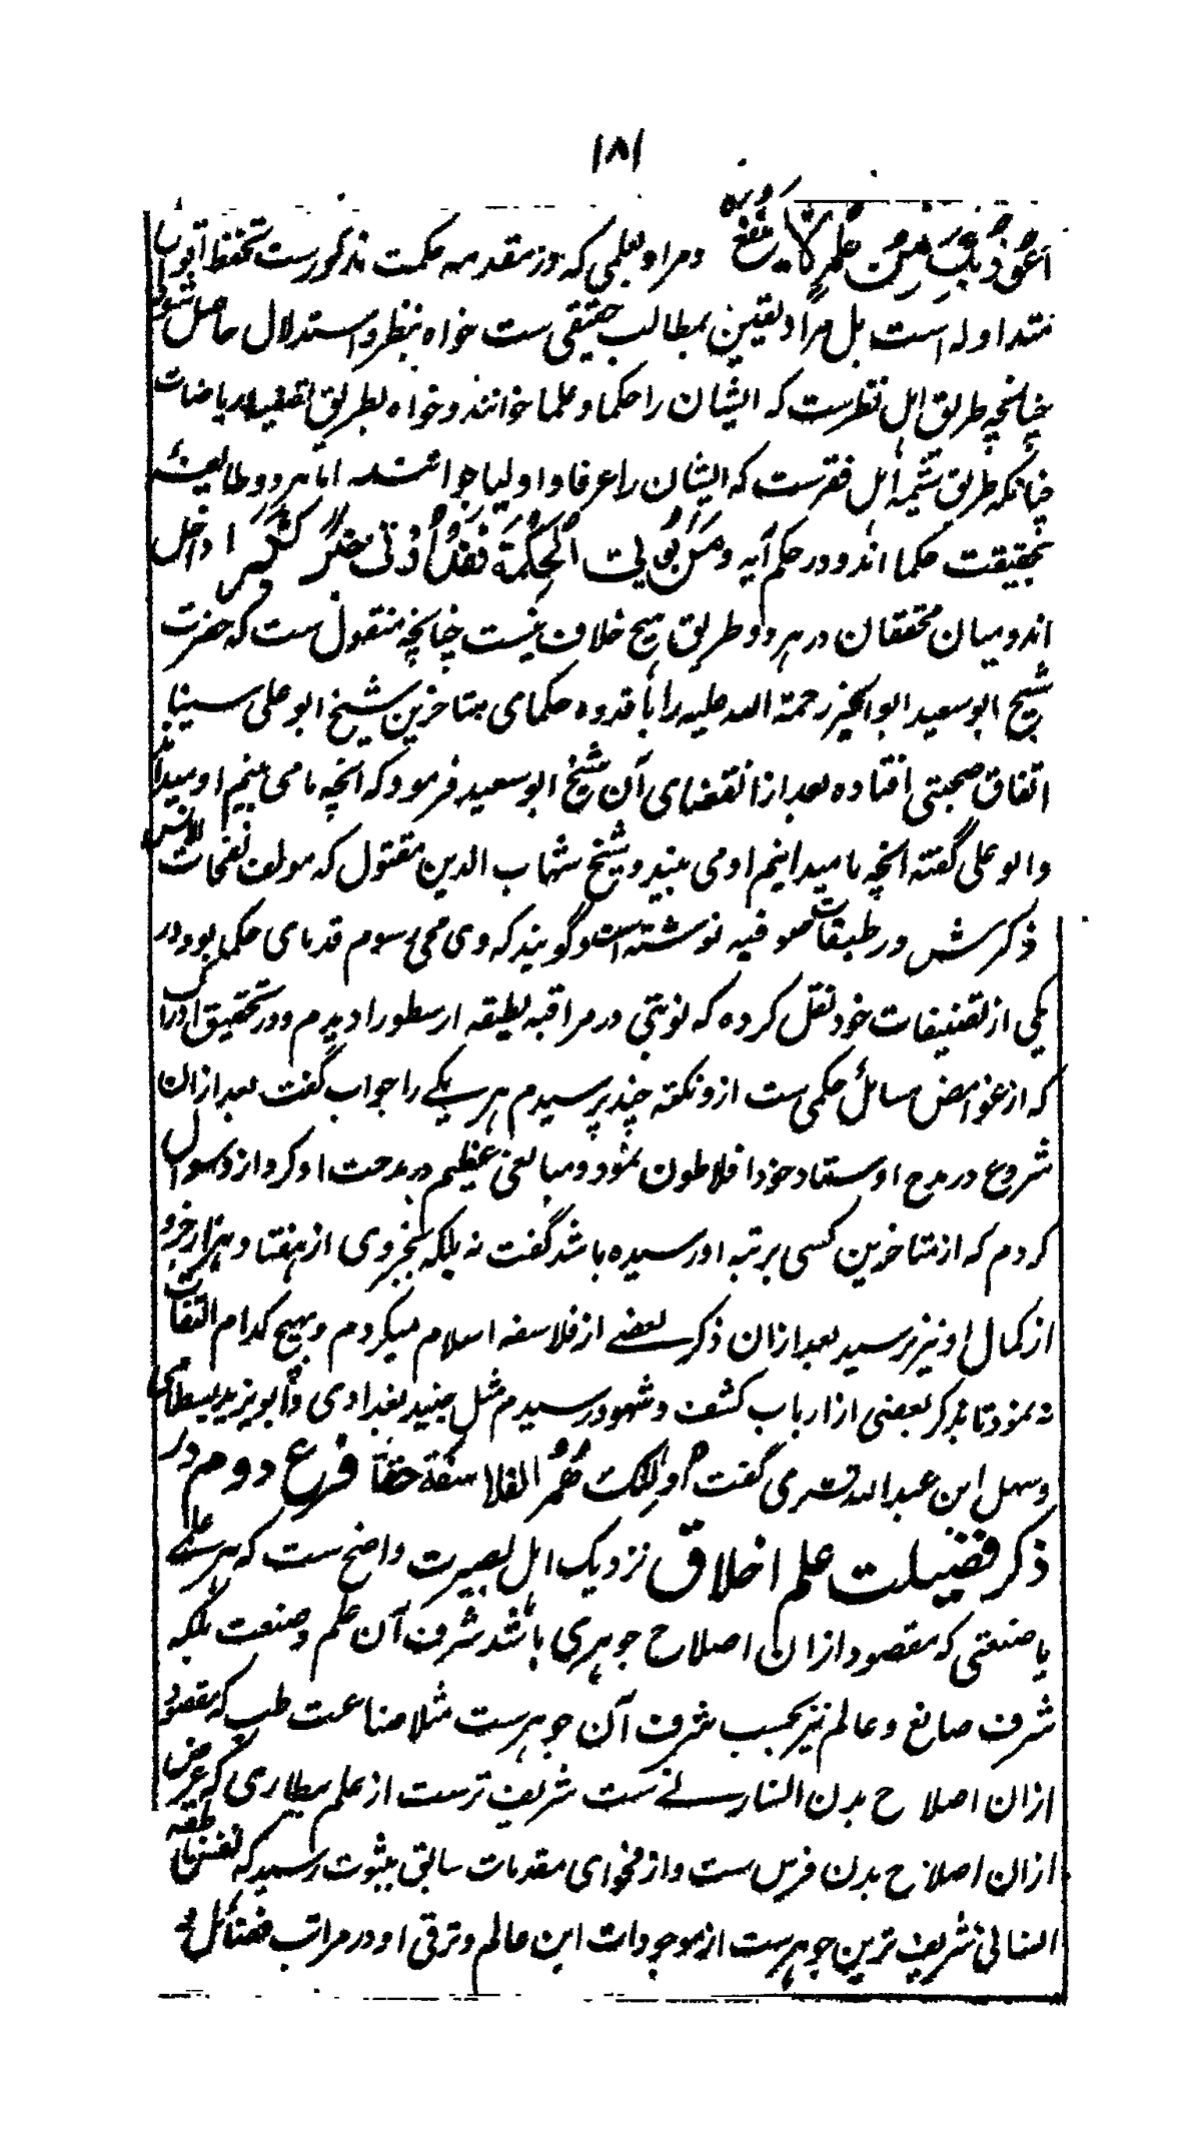 ۱۸۱
اَعُوْذُ بِكَ مِنْ عِلْمٍ لَا يَنْفَعُ ومراد بعلمی که در مقدمه حکمت مذکورست تحفظ اقوال
متداوله است بل مراد یقین بمطالب حقیقی ست خواه بنظر و استدلال حاصل شود
چنانچه طریق اهل نظرست که ایشان را حکما و علما خوانند و خواه بطریق تصفیه و ریاضات
چنانکه طریق شیمه اهل فقرست که ایشان را عرفا و اولیا خوانند اما هر دو طایفه
بحقیقت حکما اند و در حکم آیه وَمَنْ يُؤْتَ الْحِكْمَةَ فَقَدْ اُوْتِيَ خَيْرًا كَثِيْرًا داخل
اند و میان محققان در هر دو طریق هیچ خلاف نیست چنانچه منقول ست که حضرت
شیخ ابو سعید ابو الخیر رحمة الله علیه را با قدوه حکمای متاخرین شیخ ابو علی سینا
اتفاق صحبتی افتاده بعد از انقضای آن شیخ ابو سعید فرمود که انچه ما می بینیم او میداند
و ابو علی گفته انچه ما میدانیم او می بیند و شیخ شهاب الدین مقتول که مولف نفحات الانس
ذکرش در طبقات صوفیه نوشته است و گویند که وی محی رسوم قدمای حکما بود در
یکی از تصنیفات خود نقل کرده که نوبتی در مراقبه لطیفه ارسطو را دیدم و در تحقیق ادراک
که از غوامض مسائل حکمی ست ازو نکته چند پرسیدم هر یکے را جواب گفت بعد ازان
شروع در مدح اوستاد خود افلاطون نمود و مبالغی عظیم در مدحت او کرد ازو سوال
کردم که از متاخرین کسی برتبه او رسیده باشد گفت نه بلکه بجزوی از هفتاد هزار جزو
از کمال او نیز نرسید بعد ازان ذکر بعضے از فلاسفه اسلام میکردم و بهیچ کدام التفات
نه نمود تا بذکر بعضی از ارباب کشف و شهود رسیدم مثل جنید بغدادی و ابو یزید بسطامی
و سهل ابن عبد الله تستری گفت اُولٰئِكَ هُمُ الْفَلَاسِفَةُ حَقًّا فرع دوم در
ذکر فضیلت علم اخلاق نزدیک اهل بصیرت واضح ست که هر علمے
یا صنعتی که مقصود ازان اصلاح جوهری باشد شرف آن علم و صنعت بلکه
شرف صانع و عالم نیز بحسب شرف آن جوهرست مثلا صناعت طب که مقصود
ازان اصلاح بدن انسانے ست شریف ترست از علم بیطاری که غرض
ازان اصلاح بدن فرس ست و از فحوای مقدمات سابق بثبوت رسید که نفس ناطقه
انسانی شریف ترین جوهرست از موجودات این عالم و ترقی او در مراتب فضائل